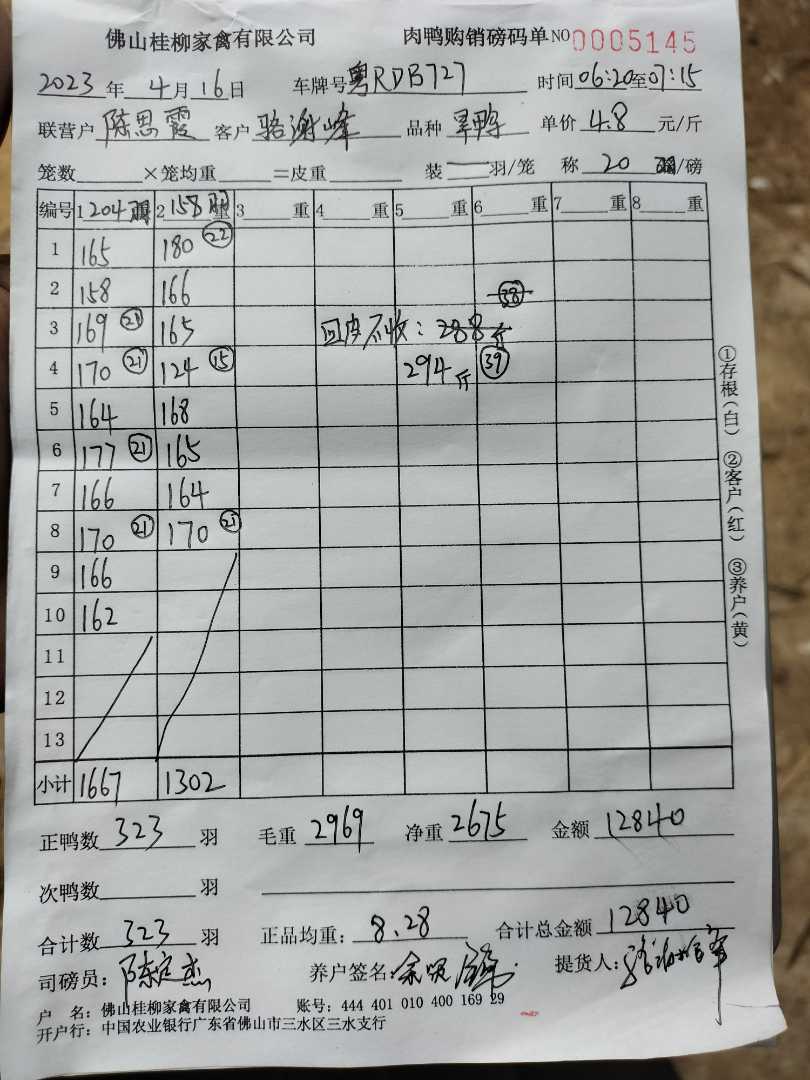 佛山桂柳家禽有限公司 肉鸭购销磅码单 NO 0005145
2023年 4月16日 车牌号粤RDB727 时间06:20至07:15
联营户陈思霞 客户骆谢峰 品种 旱鸭 单价 4.8 元/斤
笼数 ×笼均重 =皮重 装 一 羽/笼 称 20 /磅
编号 1 204 2 158 重 3 重 4 重 5 重 6 重 7 重 8 重
1 165 180 22
2 158 166 38
3 169 21 165 回皮不收：288斤
4 170 21 124 15 294斤 39
5 164 168
6 177 21 165
7 166 164
8 170 21 170 21
9 166
10 162
11
12
13
小计 1667 1302
①存根(白) ②客户(红) ③养户(黄)
正鸭数 323 羽 毛重 2969 净重 2675 金额 12840
次鸭数 羽
合计数 323 羽 正品均重：8.28 合计总金额 12840
司磅员： 养户签名： 提货人：
户 名：佛山桂柳家禽有限公司 账号：444 401 010 400 169 29
开户行：中国农业银行广东省佛山市三水区三水支行